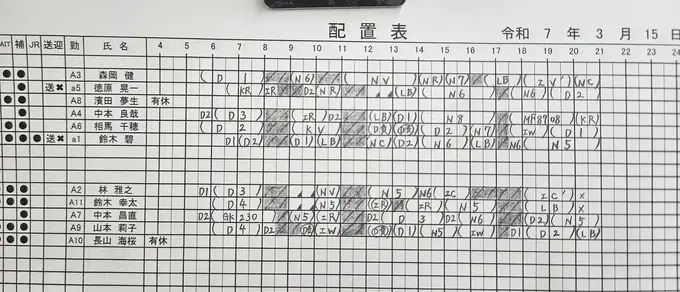 配置表 令和 7 年 3 月 15 日
AIT 補 JR 送迎 勤 氏名 4 5 6 7 8 9 10 11 12 13 14 15 16 17 18 19 20 21 22 23 24
● ● A3 森岡 健 ( D 1 ) (N6) ( NV ) (NR) (N7) (LB) ( IV' ) (NC)
● 送✖ a5 徳原 晃一 (KR) IR D2 (NR) (LB) ( N6 ) (N6) ( D2 )
● ● A8 濱田 夢生 有休
● A4 中本 良哉 D2 ( D3 ) ( IR ) D2 (LB) (D1) ( N8 ) ( MF8708 ) (KR)
● A6 相馬 千穂 ( D 2 ) ( KV ) ( D2 ) (N7) ( IW ) ( D1 )
● ● ● 送✖ a1 鈴木 碧 D1 (D2) (D1) (LB) (NC) (D2) ( N6 ) (LB) N6 ( N5 )
● ● A2 林 雅之 D1 ( D3 ) (NV) ( N5 ) N6 ( IC ) ( IC' ) ×
● ● A11 鈴木 幸太 ( D4 ) (IR) ( IR ) ( N5 ) ( LB ) ×
● A7 中本 昌直 D2 (GK230) ( N5 ) (IR) (D2) ( D3 ) (D2) (N6) (D2) ( N5 )
● ● A9 山本 莉子 ( D4 ) D2 (IW) (D1) ( N5 ) ( IW ) D1 ( D2 ) (LB)
● A10 長山 海桜 有休